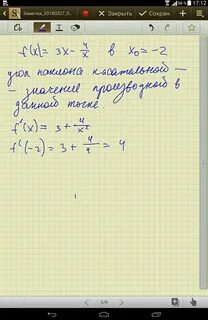 17:12
Заметка_20180327_0
Закрыть
Сохран.
f(x) = 3x - 4/x в x₀ = -2
угол наклона касательной —
- значение производной в
данной точке.
f'(x) = 3 + 4/x²
f'(-2) = 3 + 4/4 = 4